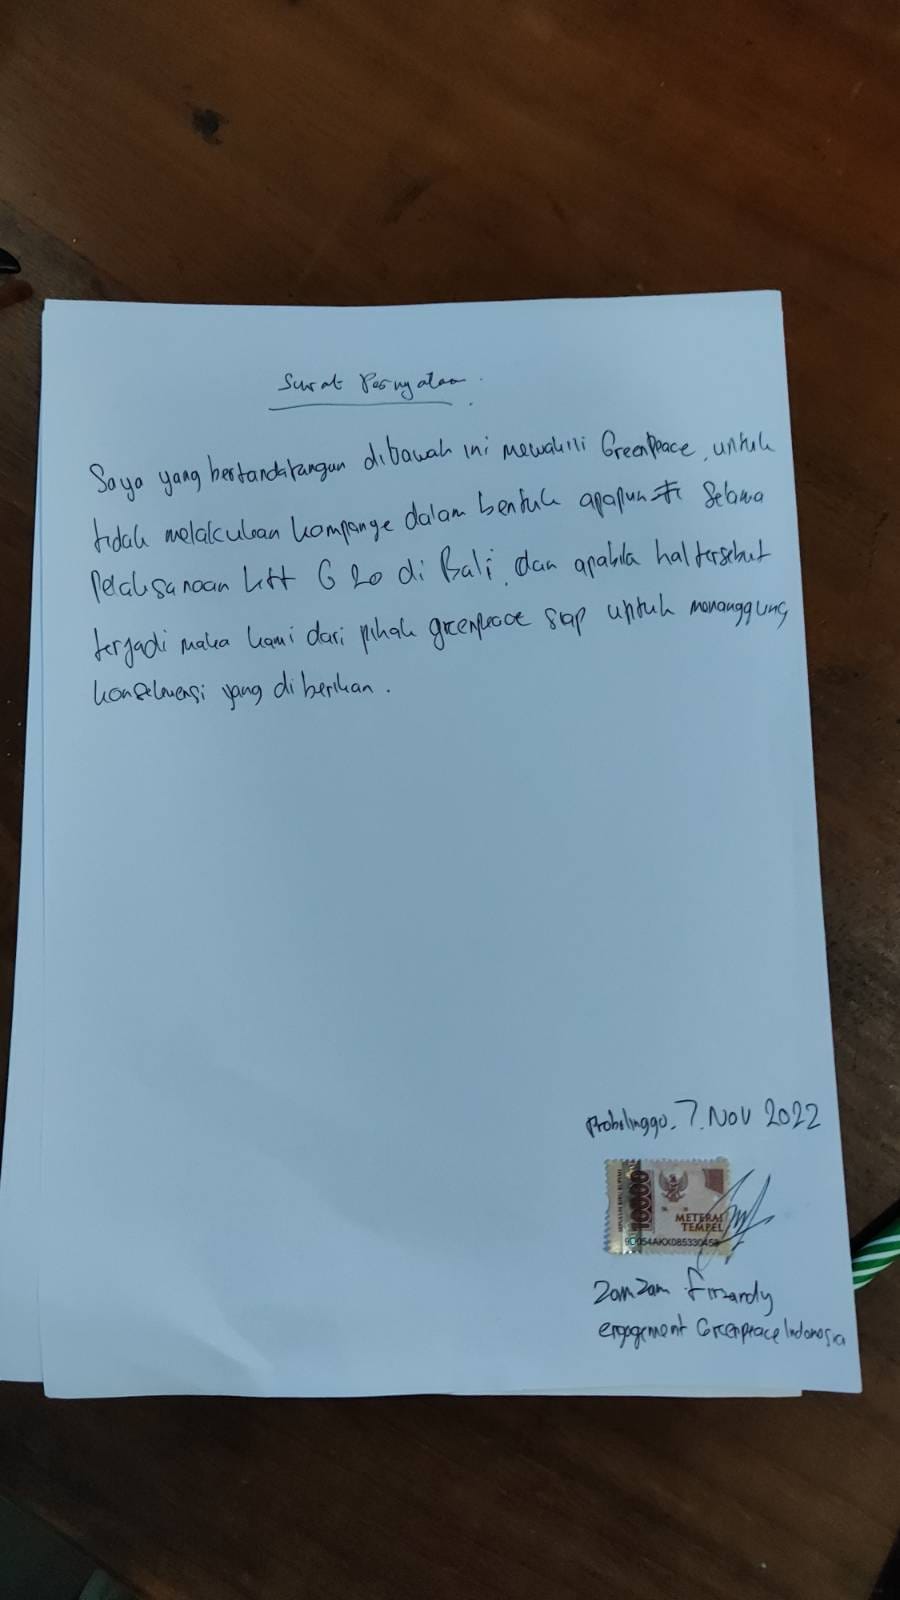 Surat Pernyataan.
Saya yang bertandatangan dibawah ini mewakili GreenPeace, untuk
tidak melakukan kampange dalam bentuk apapun selama
Pelaksanaan ktt G20 di Bali, dan apabila hal tersebut
terjadi maka kami dari pihak greenpeace siap untuk menanggung
konsekuensi yang diberikan.
Probolinggo, 7. Nov 2022
10000
METERAI
TEMPEL
Zamzam Firzandy
engagement Greenpeace Indonesia